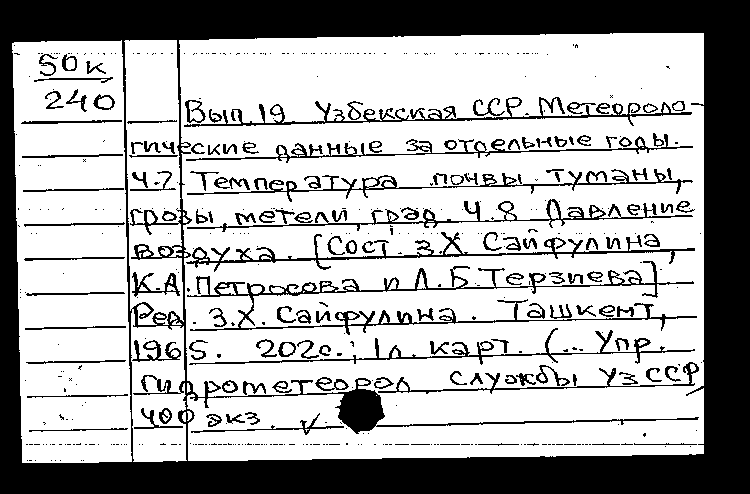 50к
240
Вып. 19 Узбекская ССР. Метеороло-
гические данные за отдельные годы.
Ч.7 Температура почвы, туманы,
грозы, метели, град. Ч.8 Давление
воздуха. [Сост. З.Х. Сайфулина,
К.А. Петросова и Л.Б. Терзиева]
Ред. З.Х. Сайфулина. Ташкент,
1965. 202с.; 1л. карт. (... Упр.
гидрометеорол. службы УзССР)
400 экз. √